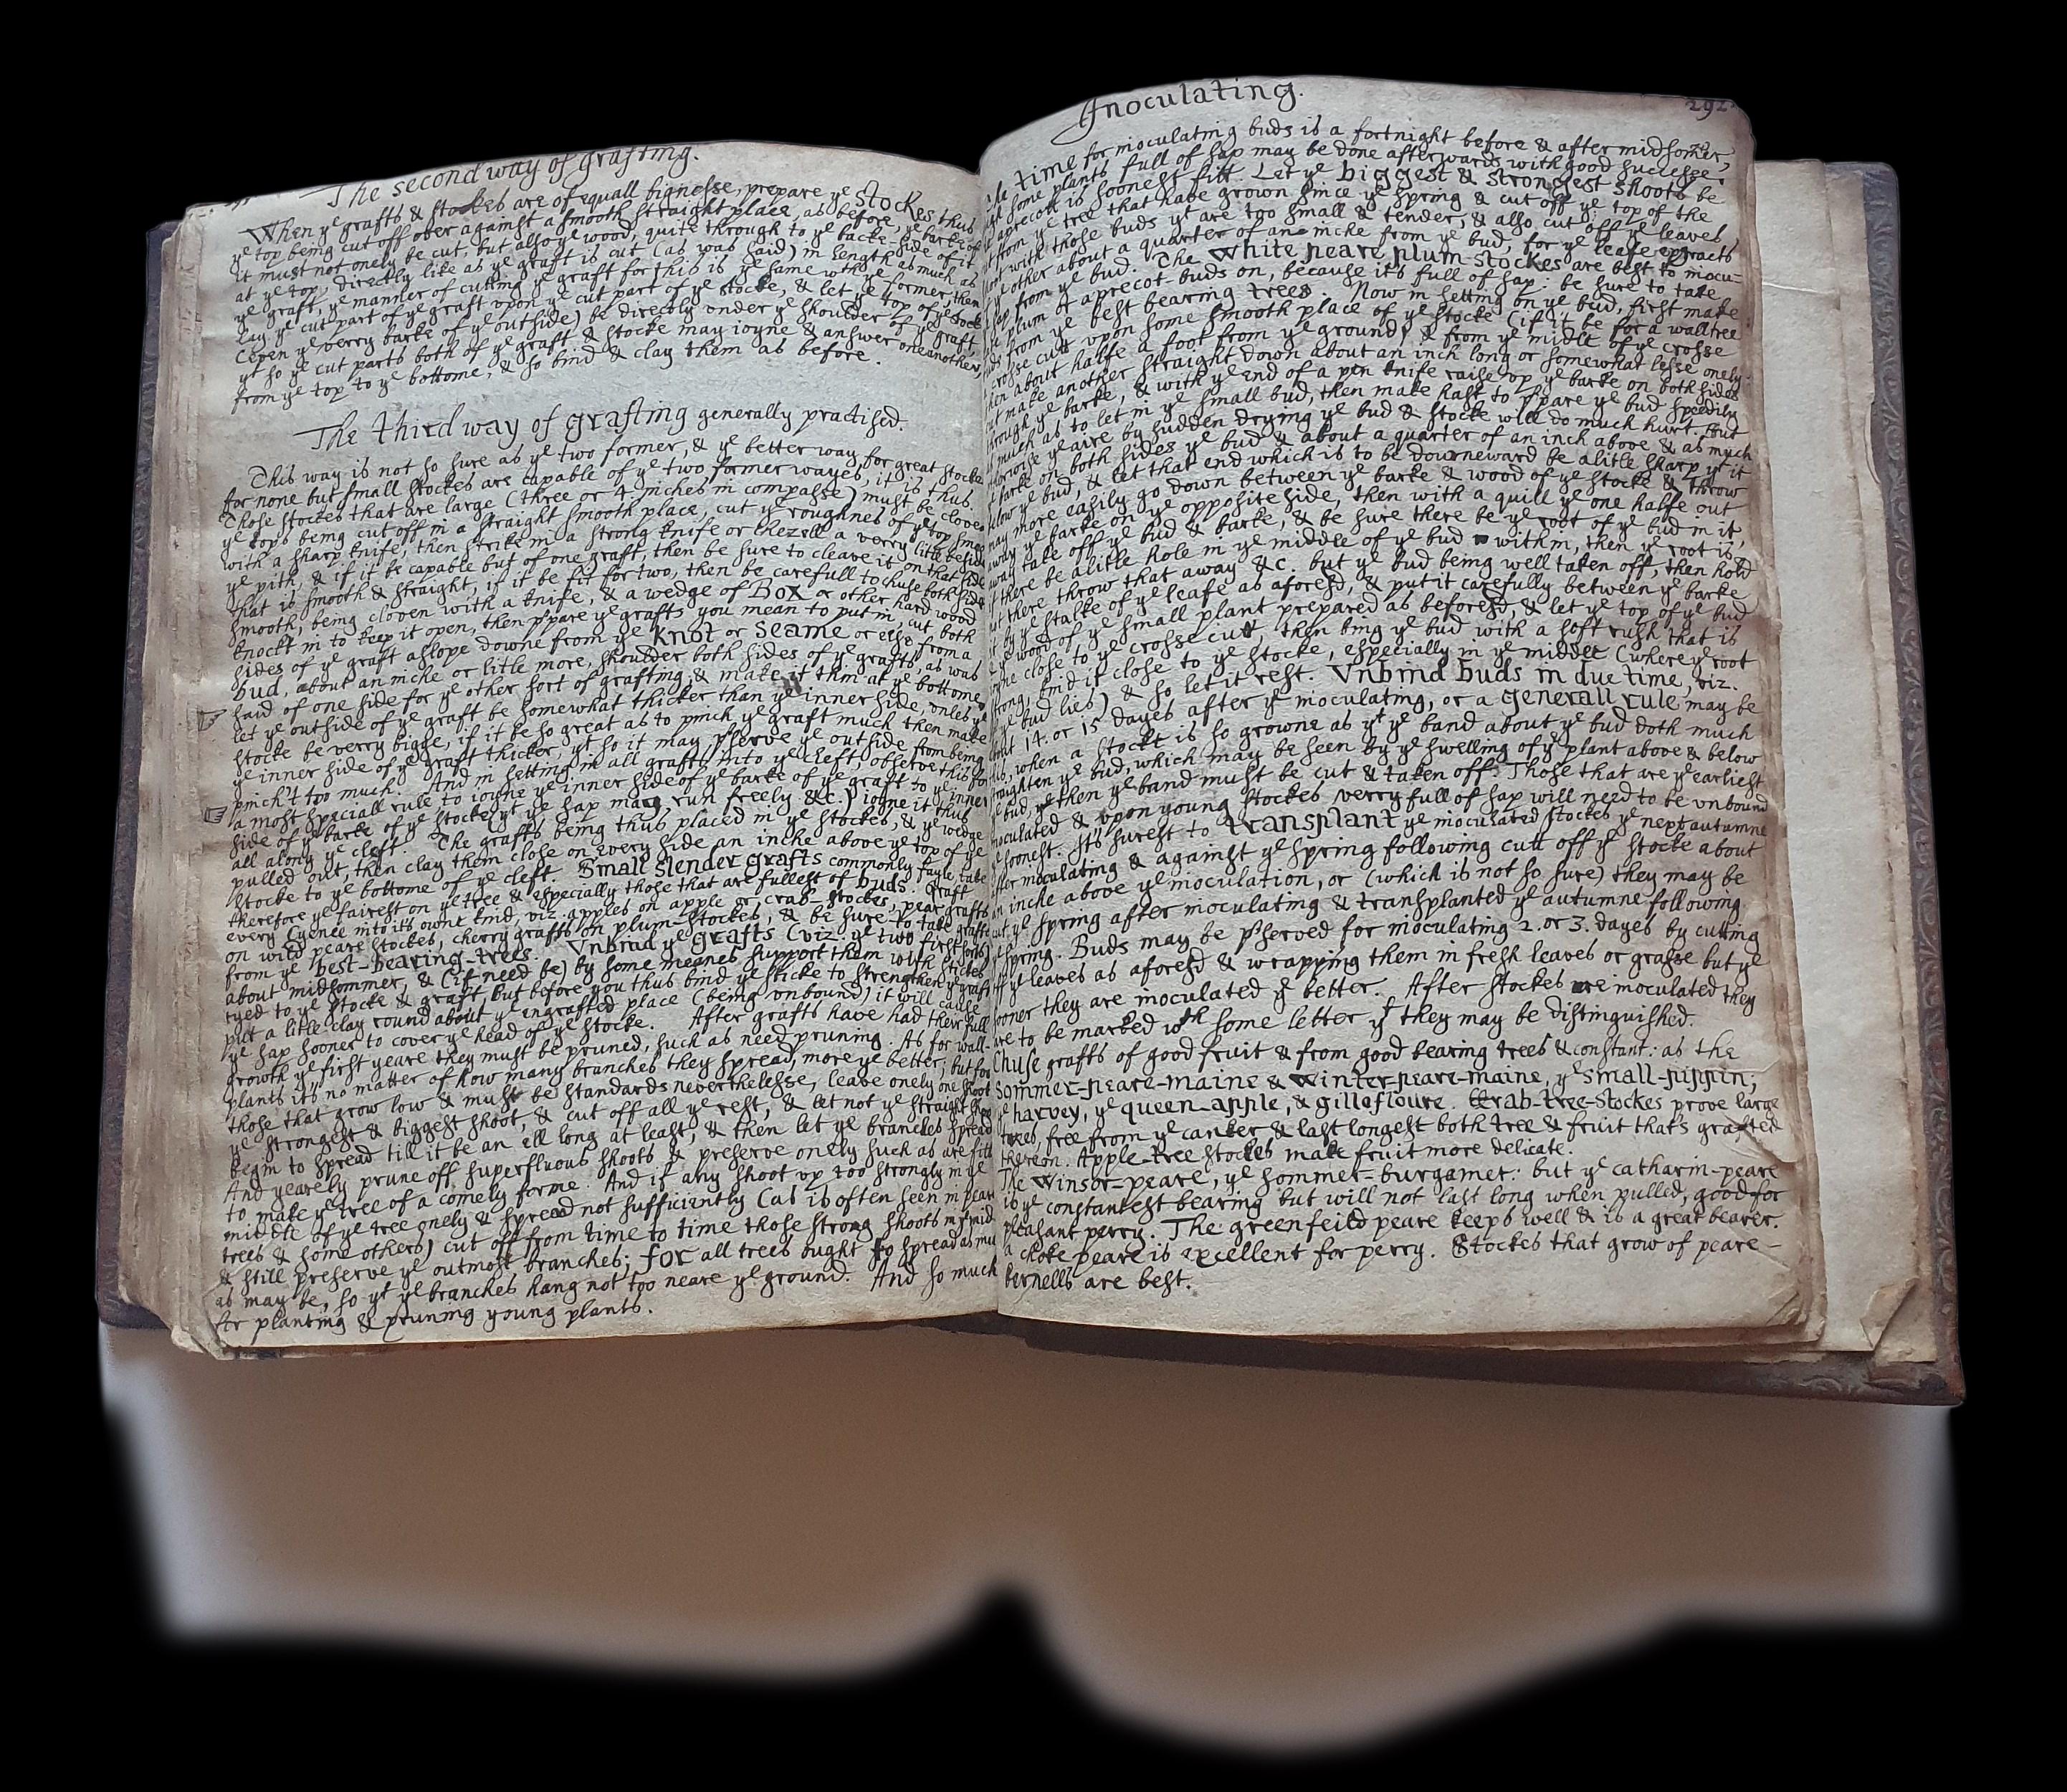 The second way of grafting.
When ye grafts & stockes are of equall bignesse, prepare ye stockes thus
ye top being cut off over against a smooth straight place, as before, ye barke of
it must not onely be cut, but also ye wood, quite through to ye backe-side of it
at ye top, directly like as ye graft is cut (as was said) in length as much as
ye graft, ye manner of cutting ye graft for this is ye same with ye former, then
lay ye cut part of ye graft upon ye cut part of ye stocke, & let ye top of ye stock
(even ye verry barke of ye outside) be directly under ye shoulder of ye graft,
yt so ye cut parts both of ye graft & stocke may ioyne & answer one another,
from ye top to ye bottome, & so bind & clay them as before.
The third way of grafting generally practised.
This way is not so sure as ye two former, & ye better way for great stockes
for none but small stockes are capable of ye two former wayes, it is thus.
Those stockes that are large (three or 4 inches in compasse) must be cloven
ye tops being cut off in a straight smooth place, cut ye roughnes of ye top smooth
with a sharp knife, then strike in a strong knife or chezell a verry litle beside
ye pith, & if it be capable but of one graft, then be sure to cleave it on that side
that is smooth & straight, if it be fit for two, then be carefull to chuse both sides
smooth, being cloven with a knife, & a wedge of Box or other hard wood
knockt in to keep it open, then ppare ye grafts you mean to put in, cut both
sides of ye graft aslope downe from ye knot or seame or else from a
bud, about an inche or litle more, shoulder both sides of ye grafts, as was
said of one side for ye other sort of grafting, & make it thin at ye bottome,
let ye outside of ye graft be somewhat thicker than ye inner side, onles ye
stocke be verry bigge, if it be so great as to pinch ye graft much then make
ye inner side of ye graft thicker, yt so it may pserve ye outside from being
pinch't too much. And in setting in all grafts into ye cleft observe this for
a most speciall rule to ioyne ye inner side of ye barke of ye graft to ye inner
side of ye barke of ye stocke (yt ye sap may run freely &c.) ioyne it thus
all along ye cleft. The grafts being thus placed in ye stockes, & ye wedge
pulled out, then clay them close on every side an inche above ye top of ye
stocke to ye bottome of ye cleft. Small slender grafts commonly fayle, take
therefore ye fairest on ye tree & especially those that are fullest of buds. Graft
every Cyence into its owne kind, viz. apples on apple or crab-stockes, pear grafts
on wild peare stockes, cherry grafts on plum-stockes, & be sure to take grafts
from ye best-bearing-trees. Unbind ye grafts (viz: ye two first sorts)
about midsommer, & (if need be) by some meanes support them with stickes
tyed to ye stocke & graft, but before you thus bind ye sticke to strengthen ye graft
put a litle clay round about ye ingrafted place (being unbound) it will cause
ye sap sooner to cover ye head of ye stocke. After grafts have had their full
growth ye first yeare they must be pruned, such as need pruning. As for wall-
plants its no matter of how many branches they spread, more ye better; but for
those that grow low & must be standards neverthelesse, leave onely one shoot
ye strongest & biggest shoot, & cut off all ye rest, & let not ye straight shoot
begin to spread till it be an ell long at least, & then let ye branches spread
And yearely prune off superfluous shoots & preserve onely such as are fitt
to make ye tree of a comely forme. And if any shoot up too strongly in ye
middle of ye tree onely & spread not sufficiently (as is often seen in pear
trees & some others) cut off from time to time those strong shoots in ye mid
& still preserve ye outmost branches; for all trees ought to spread as mu
as may be, so yt ye branches hang not too neare ye ground. And so much
for planting & pruning young plants.
Inoculating.
292
time for inoculating buds is a fortnight before & after midsomer,
some plants full of sap may be done afterwards with good successe.
apricott is soonest fitt. Let ye biggest & strongest shoots be
from ye tree that have grown since ye spring & cut off ye top of the
with those buds yt are too small & tender, & also cut off ye leaves
other about a quarter of an inche from ye bud, for ye leafe extracts
sap from ye bud. The white peare plum-stockes are best to inocu-
plum or aprecot-buds on, because its full of sap: be sure to take
from ye best bearing trees. Now in setting on ye bud, first make
crosse cutt upon some smooth place of ye stocke (if it be for a walltree
then about halfe a foot from ye ground) & from ye midle of ye crosse
cut make another straight down about an inch long or somewhat lesse onely
through ye barke, & with ye end of a pen knife raise up ye barke on both sides
much as to let in ye small bud, then make hast to ppare ye bud speedily
otherwise ye aire by sudden drying ye bud & stocke will do much hurt. But
barke on both sides ye bud & about a quarter of an inch above & as much
below ye bud, & let that end which is to be downeward be a litle sharp yt it
may more easily go down between ye barke & wood of ye stocke & throw
away ye barke on ye opposite side, then with a quill ye one halfe out
way take off ye bud & barke, & be sure there be ye root of ye bud in it,
if there be a litle hole in ye middle of ye bud within, then ye root is,
not there throw that away &c. but ye bud being well taken off, then hold
it by ye stalke of ye leafe as aforesd, & put it carefully between ye barke
& wood of ye small plant prepared as beforesd, & let ye top of ye bud
ioyne close to ye crosse cutt, then bing ye bud with a soft rush that is
strong, bind it close to ye stocke, especially in ye middle (where ye root
of ye bud lies) & so let it rest. Unbind buds in due time, viz.
about 14. or 15 dayes after ye inoculating, or a generall rule may be
this, when a stocke is so growne as yt ye band about ye bud doth much
straighten ye bud, which may be seen by ye swelling of ye plant above & below
ye bud, yt then ye band must be cut & taken off. Those that are ye earliest
inoculated & upon young stockes verry full of sap will need to be unbound
soonest. Its surest to transplant ye inoculated stockes ye next autumne
after inoculating & against ye spring following cutt off ye stocke about
an inche above ye inoculation, or (which is not so sure) they may be
cut ye spring after inoculating & transplanted ye autumne following
spring. Buds may be pserved for inoculating 2. or 3. dayes by cutting
off ye leaves as aforesd & wrapping them in fresh leaves or grasse but ye
sooner they are inoculated ye better. After stockes are inoculated they
are to be marked wth some letter yt they may be distinguished.
Chuse grafts of good fruit & from good bearing trees & constant: as the
sommer-peare-maine & winter-peare-maine, ye small-pippin;
ye harvey, ye queen-apple, & gillofloure. Crab-tree-stockes prove large
trees, free from ye canker & last longest both tree & fruit thats grafted
thereon. Apple-tree stockes make fruit more delicate.
The winsor-peare, ye sommer-burgamet: but ye catharin-peare
is ye constantest bearing but will not last long when pulled, good for
pleasant perry. The greenfeild peare keeps well & is a great bearer.
a choke peare is excellent for perry. Stockes that grow of peare-
kernells are best.